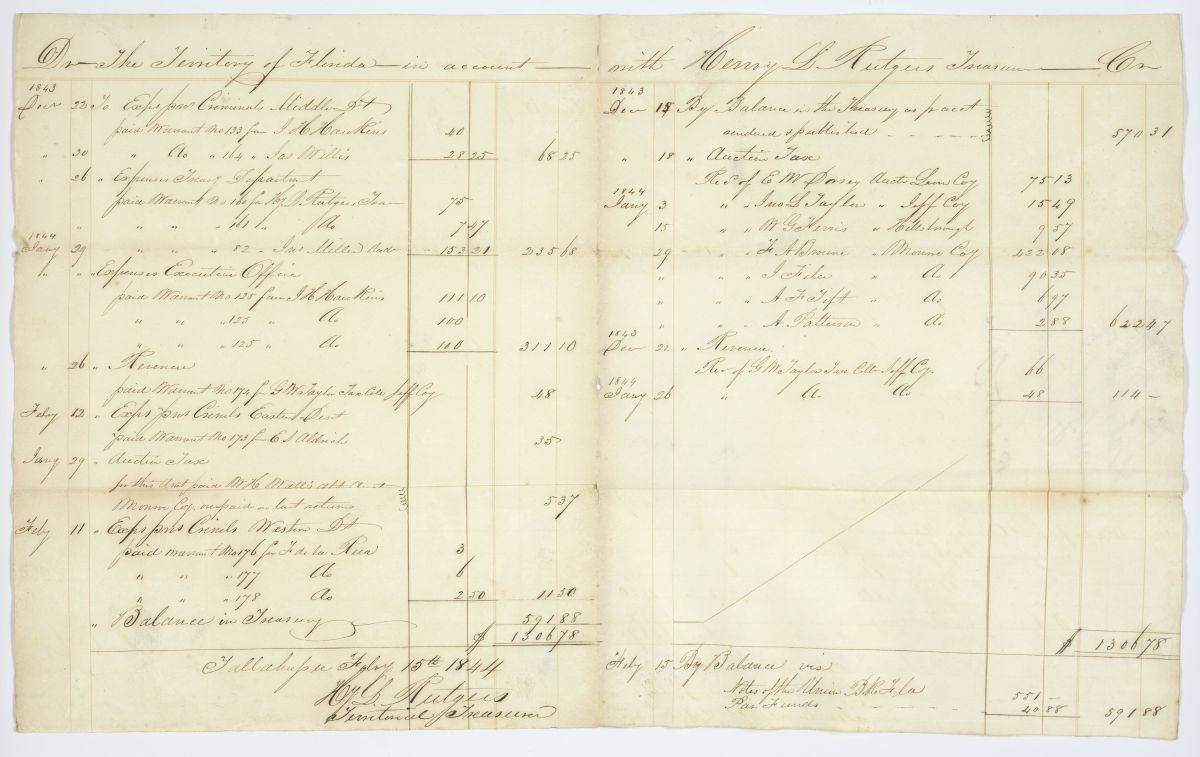 Dr The Territory of Florida in account with Henry L. Rutgers Treasurer Cr
1843
Decr 22 To Exps pros Criminals Middle Dt
paid Warrant No 133 favr J H Hawkins 40
" 30 " Do " 164 " Jas Willis 28 25 68 25
" 26 " Expenses Treasy Department
paid Warrant No 160 for Hy L Rutgers Trea 75
" " " 161 " Do 7 47
1844
Jany 29 " " " 82 " Jno Miller 153 21 235 68
" " " Expenses Executive Office
paid Warrant No 125 favr J H Hawkins 111 10
" " " 125 " Do 100
" " " 125 " Do 100 311 10
" 26 " Revenue
paid Warrant No 174 fr G W Taylor Tax Collr Jeff Coy 48
Feby 12 " Exps pros Crimls Eastern Dist
paid Warrant No 173 fr E S Aldrich 35
Jany 29 " Auction Tax
for this Amt paid W H Wall's
Monroe Coy overpaid on last returns 5 37
Feby 11 " Exps pros Crimls Western Dt
paid warrant No 176 for F de la Rua 3
" " " 177 Do 6
" " " 178 Do 2 50 11 50
" Balance in Treasury 591 88
$ 1306 78
Tallahassee Feby 15th 1844
Hy L Rutgers
Territorial Treasurer
1843
Decr 15 By Balance in the Treasury as pr acct
rendered & published 570 31
" 18 " Auction Tax
Recd of E W Dorsey Auctr Leon Coy 75 13
1844
Jany 3 " " Jno L Taylor " Jeff Coy 15 49
15 " " W G Ferris " Hillsborough 9 57
29 " " F A Browne " Monroe Coy 422 08
" " " J Filor " Do 90 35
" " " A F Tift " Do 6 97
" " " A Patterson " Do 2 88 622 47
1843
Decr 22 " Revenue
Recd of G W Taylor Tax Collr Jeff Coy. 66
1844
Jany 26 " Do Do 48 114 -
$ 1306 78
Feby 15 By Balance viz
Notes of the Union Bk Fla 551 -
Par Funds 40 88 591 88